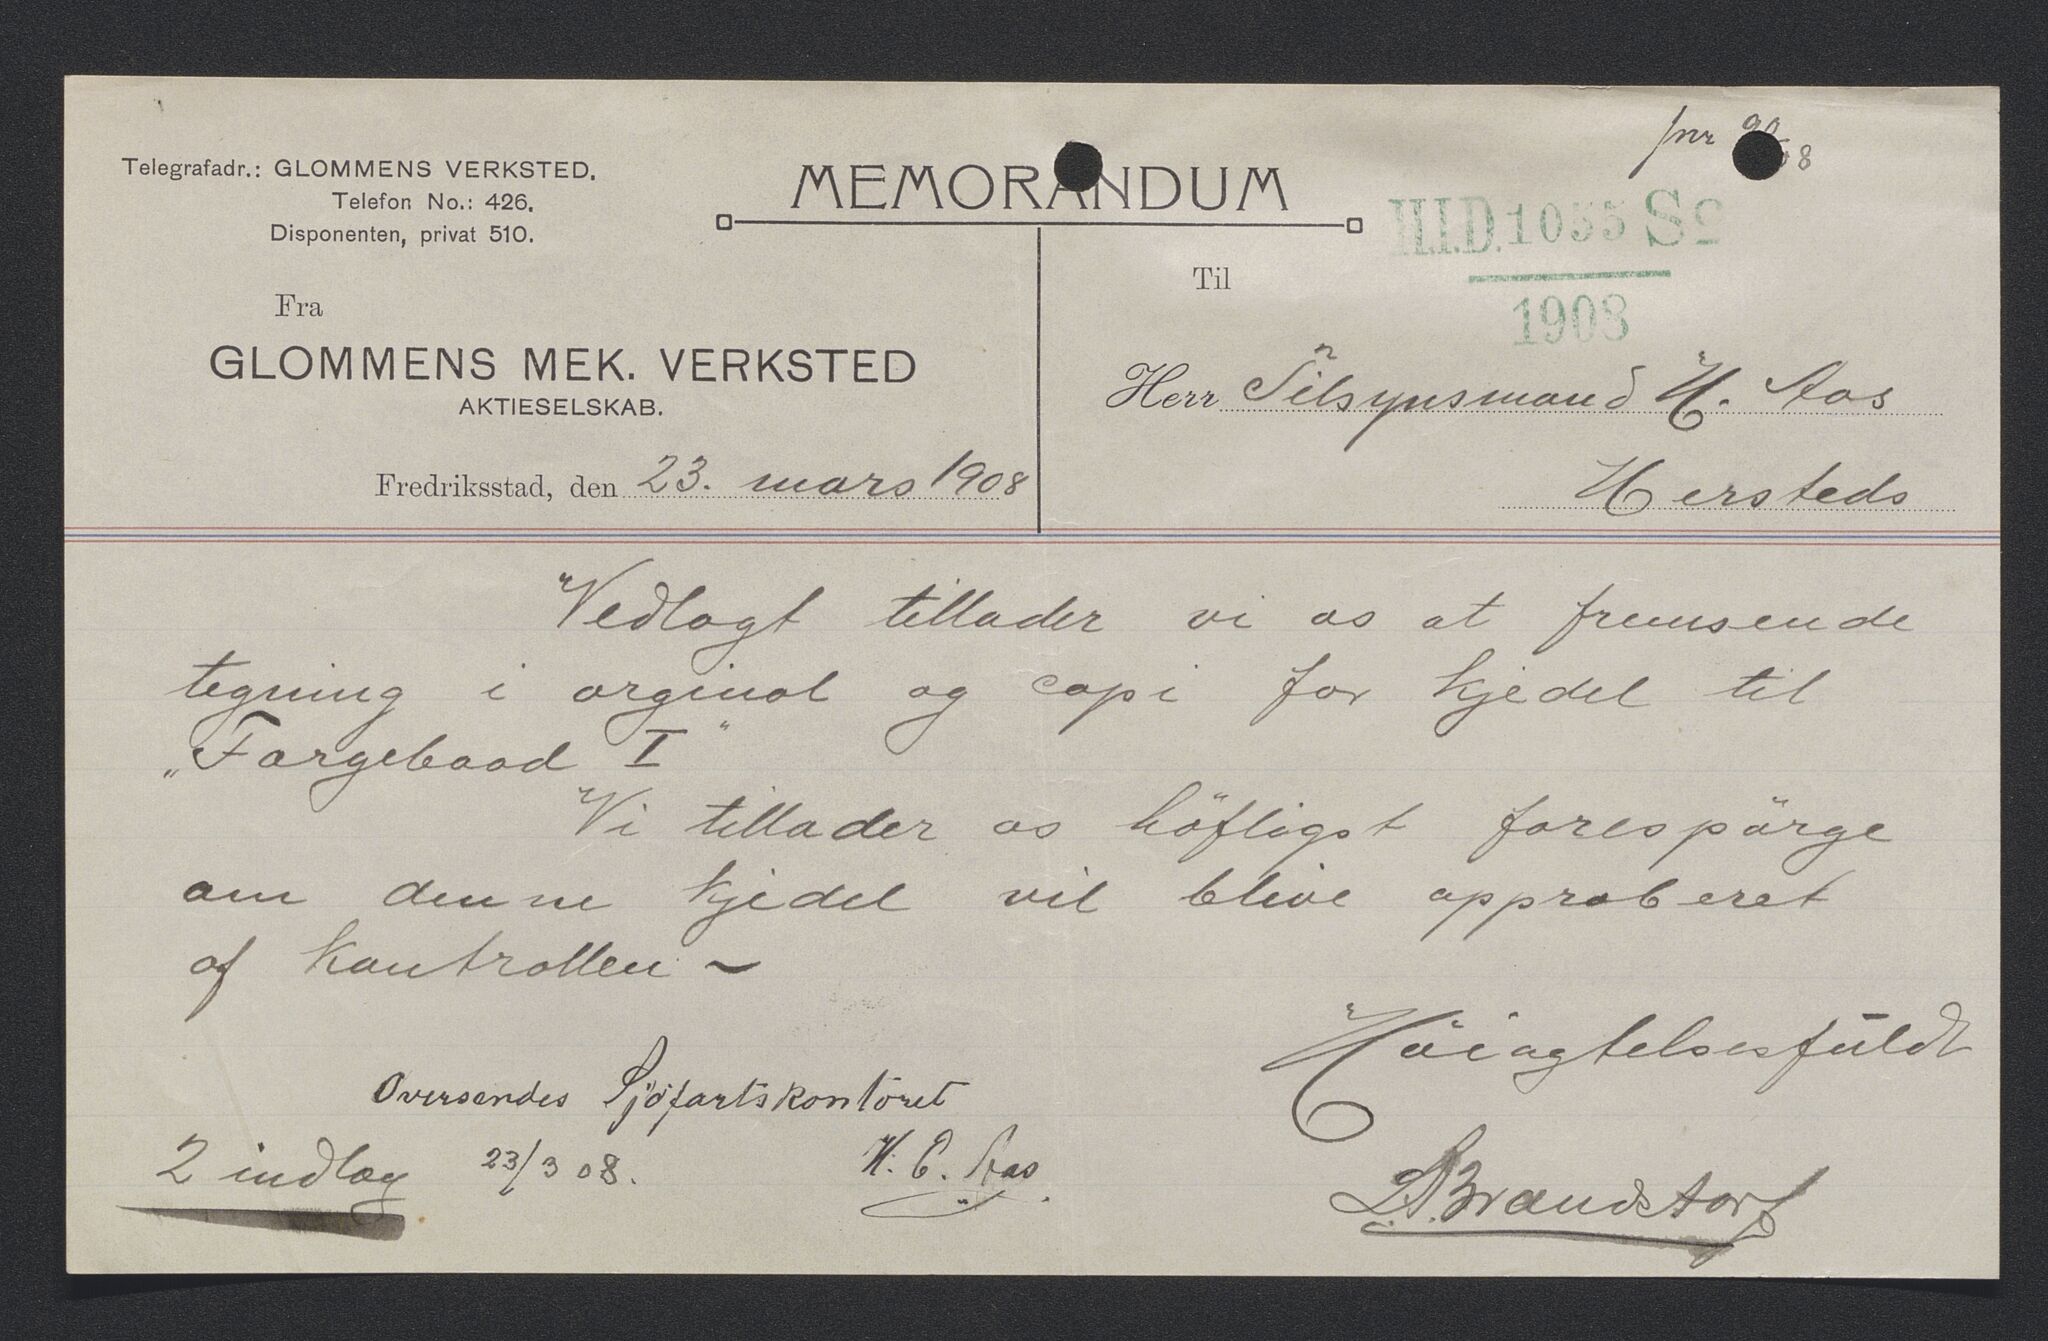 Telegrafadr.: GLOMMENS VERKSTED.
Telefon No.: 426.
Disponenten, privat 510.
MEMORANDUM
H.I.D. 1055 So
1908
Fra
GLOMMENS MEK. VERKSTED
AKTIESELSKAB.
Fredriksstad, den 23. mars 1908
Til
Herr Tilsynsmand H. Aas
Hersteds
Vedlagt tillader vi os at fremsende
tegning i orginal og copi for kjedel til
„Fargebaad I"
Vi tillader os höfligst forespörge
om denne kjedel vil blive approberet
af kontrollen –
Höiagtelsesfuldt
Oversendes Sjöfartskontoret
2 indlæg 23/3 08. H. C. Aas
Brandstorf